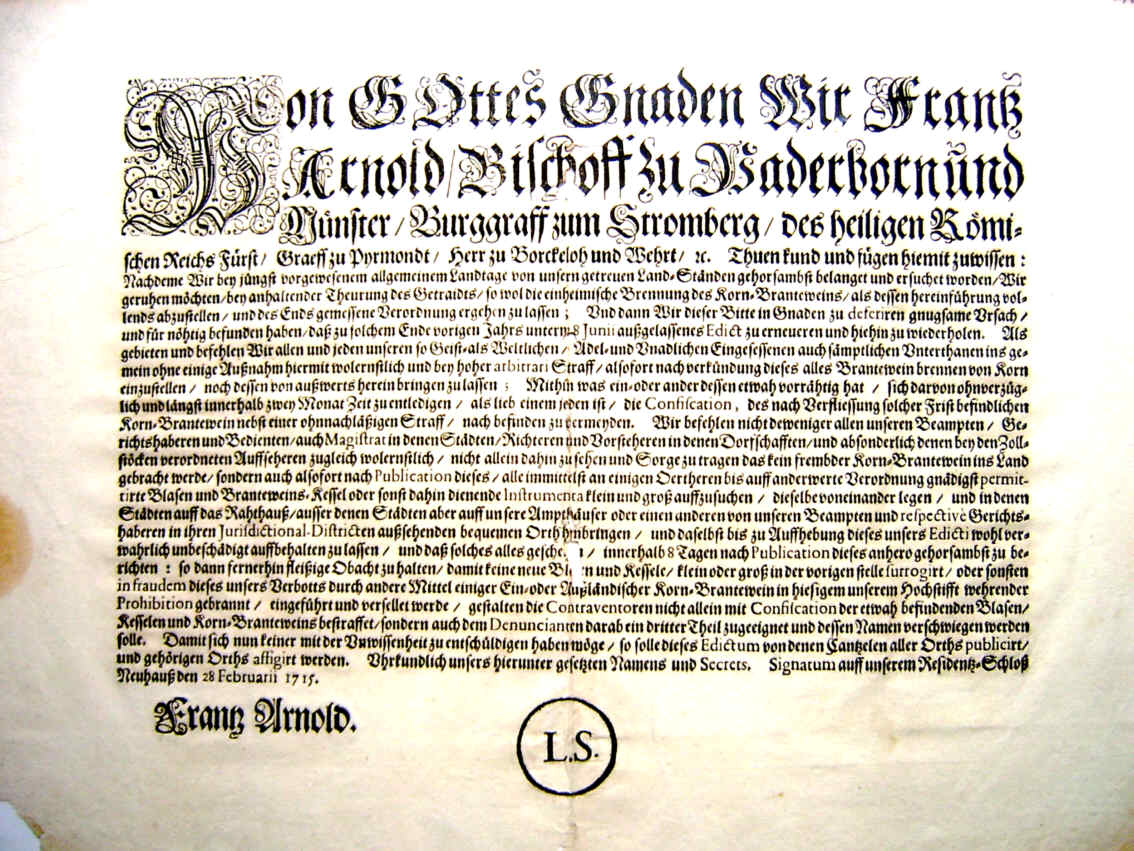 Von GOttes Gnaden Wir Frantz
Arnold / Bischoff zu Paderborn und
Münster / Burggraff zum Stromberg / des heiligen Römi-
schen Reichs Fürst / Graeff zu Pyrmondt / Herr zu Borckeloh und Wehrt / ꝛc. Thuen kund und fügen hiemit zuwissen :
Nachdeme Wir bey jüngst vorgewesenem allgemeinem Landtage von unsern getreuen Land-Ständen gehorsambst belanget und ersuchet worden / Wir
geruhen möchten / bey anhaltender Theurung des Getraidts / so wol die einheimische Brennung des Korn-Branteweins / als dessen hereinführung vol-
lends abzustellen / und des Ends gemessene Verordnung ergehen zu lassen ; Und dann Wir dieser Bitte in Gnaden zu deferiren gnugsame Ursach /
und für nöhtig befunden haben / daß zu solchem Ende vorigen Jahrs unterm 8 Junii außgelassenes Edict zu erneueren und hiehin zu wiederholen. Als
gebieten und befehlen Wir allen und jeden unseren so Geist- als Weltlichen / Adel- und Unadlichen Eingesessenen auch sämptlichen Unterthanen ins ge-
mein ohne einige Außnahm hiermit wolernstlich und bey hoher arbitrari Straff / alsofort nach verkündung dieses alles Brantewein brennen von Korn
einzustellen / noch dessen von außwerts herein bringen zu lassen ; Mithin was ein- oder ander dessen etwah vorrähtig hat / sich darvon ohnverzüg-
lich und längst innerhalb zwey Monat Zeit zu entledigen / als lieb einem jeden ist / die Confiscation, des nach Verfliessung solcher Frist befindlichen
Korn-Brantewein nebst einer ohnnachläßigen Straff / nach befinden zu vermeyden. Wir befehlen nicht deweniger allen unseren Beampten / Ge-
richtshaberen und Bedienten / auch Magistrat in denen Städten / Richteren und Vorsteheren in denen Dorfschafften / und absonderlich denen bey den Zoll-
stöcken verordneten Auffseheren zugleich wolernstlich / nicht allein dahin zu sehen und Sorge zu tragen das kein frembder Korn-Brantewein ins Land
gebracht werde / sondern auch alsofort nach Publication dieses / alle immittelst an einigen Oertheren bis auff anderwerte Verordnung gnädigst permit-
tirte Blasen und Branteweins-Kessel oder sonst dahin dienende Instrumenta klein und groß auffzusuchen / dieselbe voneinander legen / und in denen
Städten auff das Rahthauß / ausser denen Städten aber auff unsere Ampthäuser oder einen anderen von unseren Beampten und respectivè Gerichts-
haberen in ihren Jurisdictional-Districten außsehenden bequemen Orth hinbringen / und daselbst bis zu Auffhebung dieses unsers Edicti wohl ver-
wahrlich unbeschädigt auffbehalten zu lassen / und daß solches alles gesche / innerhalb 8 Tagen nach Publication dieses anhero gehorsambst zu be-
richten : so dann fernerhin fleißige Obacht zu halten / damit keine neue und Kessele / klein oder groß in der vorigen stelle surrogirt / oder sonsten
in fraudem dieses unsers Verbotts durch andere Mittel einiger Ein- oder Außländischer Korn-Brantewein in hiesigem unserem Hochstifft wehrender
Prohibition gebrannt / eingeführt und versellet werde / gestalten die Contraventoren nicht allein mit Confiscation der etwah befindenden Blasen /
Kesselen und Korn-Branteweins bestraffet / sondern auch dem Denuncianten darab ein dritter Theil zugeeignet und dessen Namen verschwiegen werden
solle. Damit sich nun keiner mit der Unwissenheit zu entschüldigen haben möge / so solle dieses Edictum von denen Cantzelen aller Orths publicirt /
und gehörigen Orths affigirt werden. Uhrkundlich unsers hierunter gesetzten Namens und Secrets. Signatum auff unserem Residentz-Schloß
Neuhauß den 28 Februarii 1715.
Frantz Arnold.
L.S.